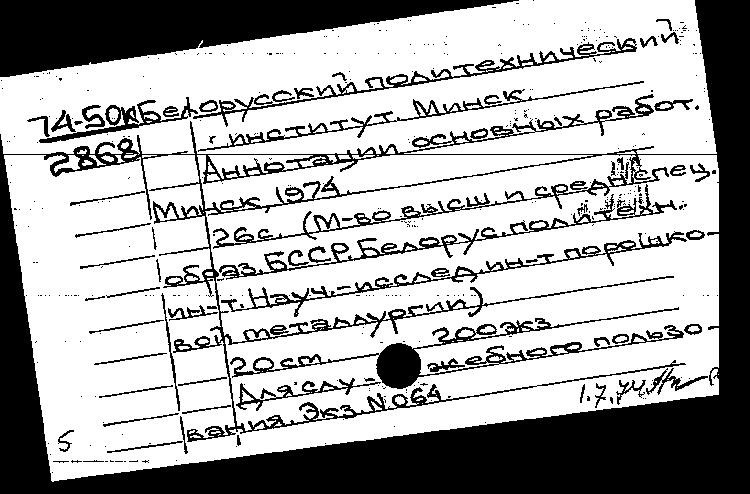 74-50к Белорусский политехнический
2868 институт. Минск.
Аннотации основных работ.
Минск, 1974.
26с. (М-во высш. и средн. спец.
образ. БССР. Белорус. политехн.
ин-т. Науч.-исслед. ин-т порошко-
вой металлургии)
20 см. 200 экз.
Для слу- жебного пользо-
вания. Экз. N 064.
1.7.74
5